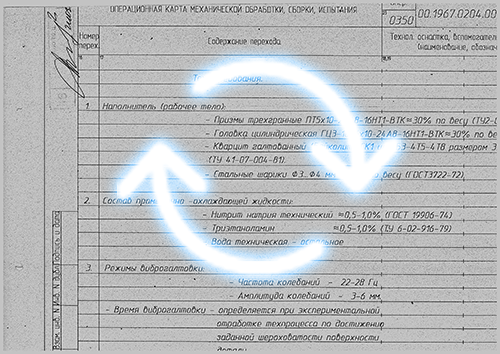 ОПЕРАЦИОННАЯ КАРТА МЕХАНИЧЕСКОЙ ОБРАБОТКИ, СБОРКИ, ИСПЫТАНИЯ
0350
00.1967.0204.00
Номер перех.
Содержание перехода
Технол. оснастка, вспомогател
(наименование, обознач
1. Наполнитель (рабочее тело):
- Призмы трехгранные ПТ5х10- -16НТ1-ВТК≈30% по весу (ТУ2-
- Головка цилиндрическая ГЦ3- х10-24А8-16НТ1-ВТК≈30% по ве
- Кварцит галтованный 3-4Т5-4Т8 размером 3
(ТУ 41-07-004-81).
- Стальные шарики Ф3...Ф4 мм весу (ГОСТ3722-72).
2. Состав -охлаждающей жидкости:
- Нитрит натрия технический ≈0,5-1,0% (ГОСТ 19906-74)
- Триэтаноламин ≈0,5-1,0% (ТУ 6-02-916-79)
Вода техническая - остальное
3. Режимы виброгалтовки:
- Частота колебаний - 22-28 Гц
- Амплитуда колебаний - 3-6 мм
- Время виброгалтовки - определяется при экспериментальной
отработке техпроцесса по достижению
заданной шероховатости поверхности
детали
Взам. инв. N Инв. N дубл. Подпись и дата